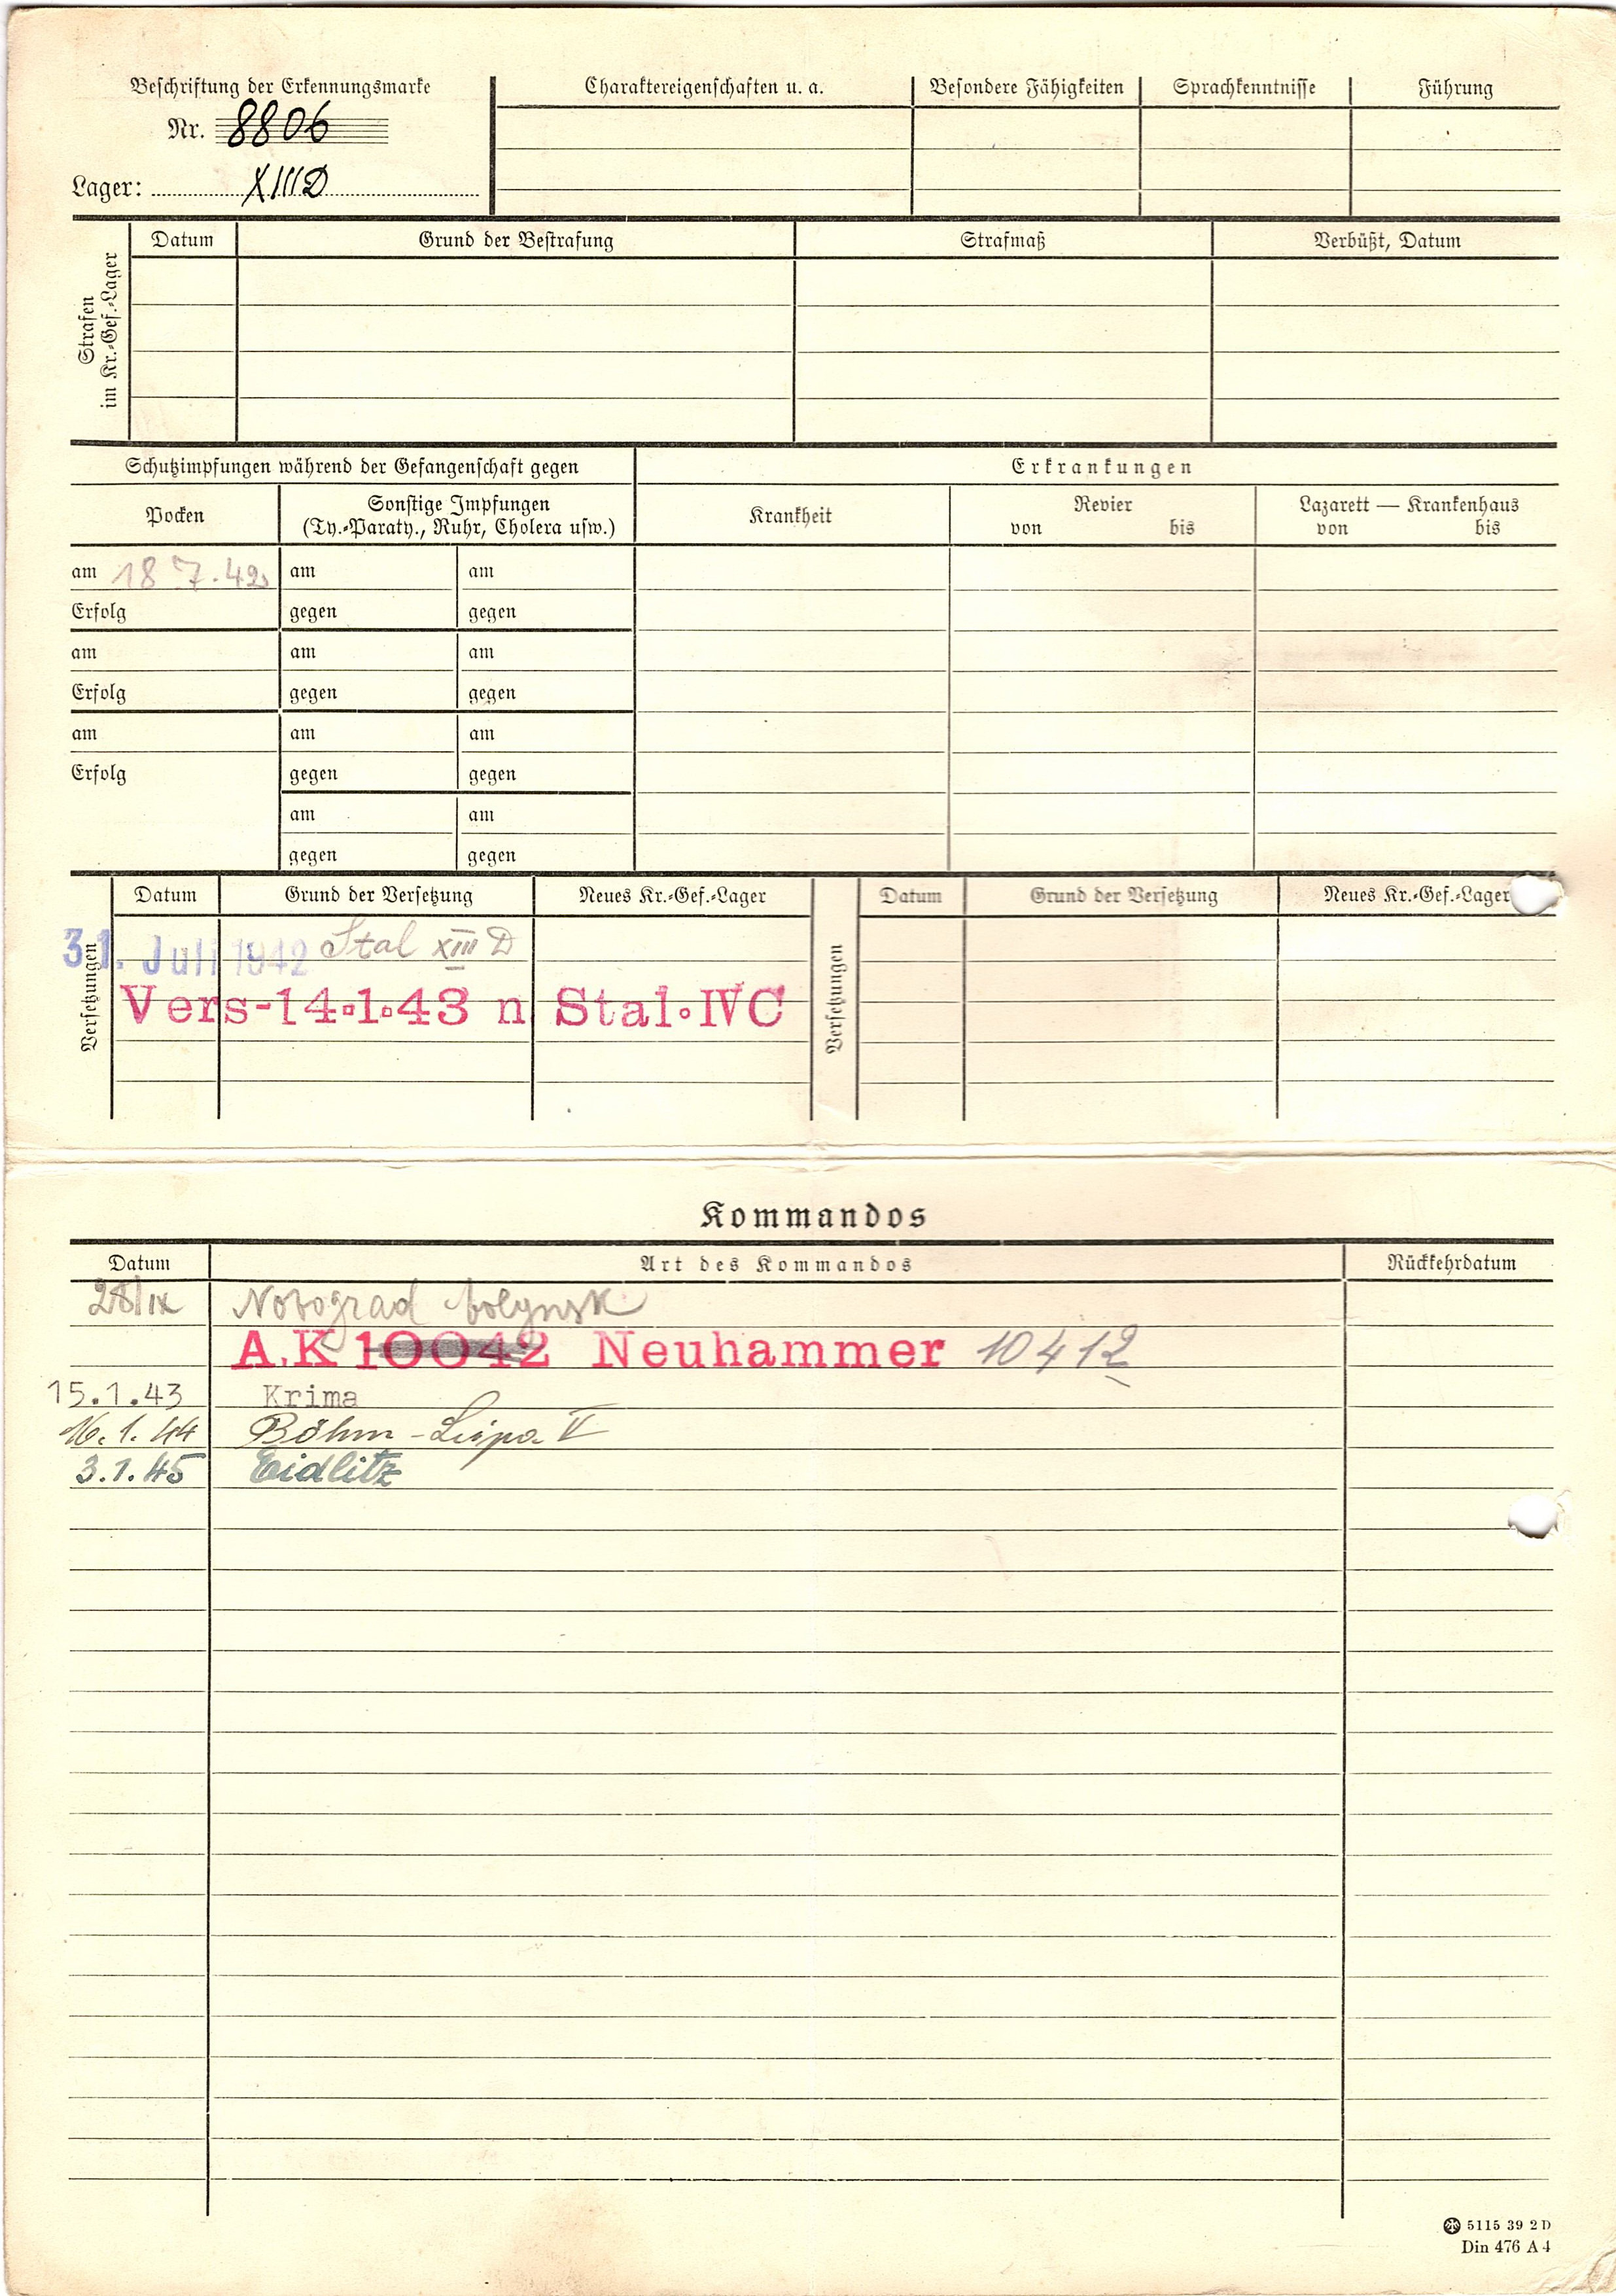 Beschriftung der Erkennungsmarke
Nr. 8806
Lager: XIIID
Charaktereigenschaften u. a.
Besondere Fähigkeiten
Sprachkenntnisse
Führung
Strafen
im Kr.-Gef.-Lager
Datum
Grund der Bestrafung
Strafmaß
Verbüßt, Datum
Schutzimpfungen während der Gefangenschaft gegen
Erkrankungen
Pocken
Sonstige Impfungen
(Ty.-Paraty., Ruhr, Cholera usw.)
Krankheit
Revier
von bis
Lazarett — Krankenhaus
von bis
am 18 7. 42 am am
Erfolg gegen gegen
am am am
Erfolg gegen gegen
am am am
Erfolg gegen gegen
am am
gegen gegen
Versetzungen
Datum Grund der Versetzung Neues Kr.-Gef.-Lager
31. Juli 1942 Stal XIII D
Vers-14.1.43 n Stal. IVC
Versetzungen
Datum Grund der Versetzung Neues Kr.-Gef.-Lager
Kommandos
Datum Art des Kommandos Rückkehrdatum
28/IX Novograd volynsk
A.K 10042 Neuhammer 10412
15.1.43 Krima
16.1.44 Böhm-Leipa V
3.1.45 Eidlitz
5115 39 2 D
Din 476 A 4